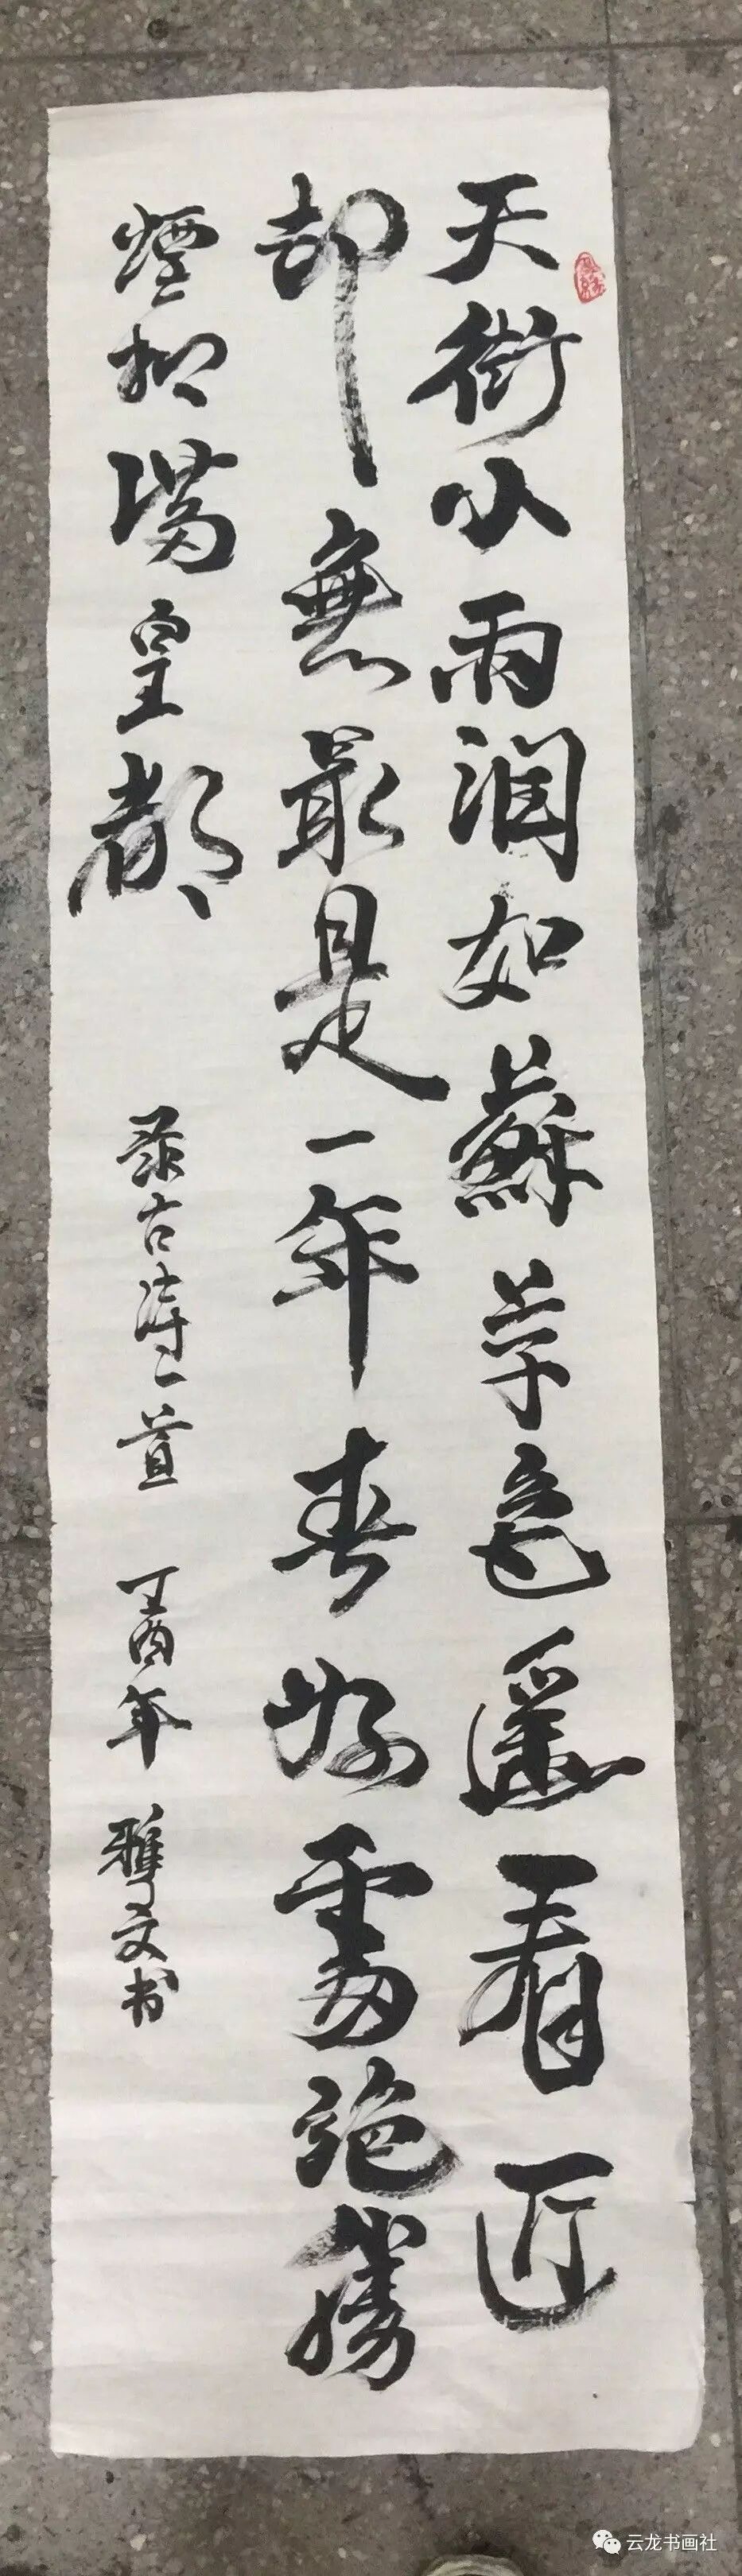 天街小雨润如蘇草色遥看近
却無最是一年春好處絶勝
煙柳满皇都
录古诗一首 丁酉年 雅文书
云龙书画社